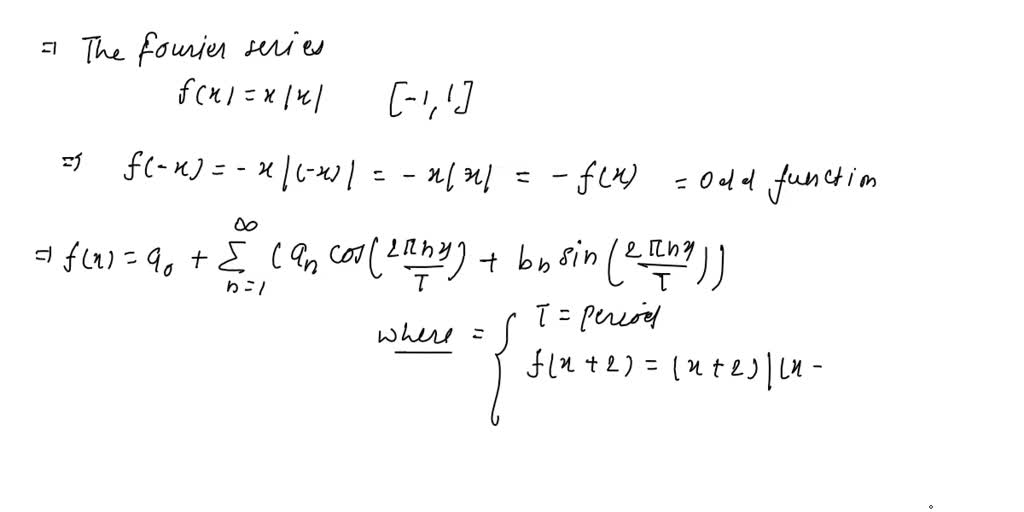 ⇒ The fourier series
f(x) = x|x| [-1, 1]
⇒ f(-x) = - x|(-x)| = - x|x| = - f(x) = odd function
⇒ f(x) = a₀ + ∑_{n=1}^{∞} (aₙ cos(2πny/T) + bₙ sin(2πny/T))
where = { T = period
f(x + 2) = (x + 2)|(x -